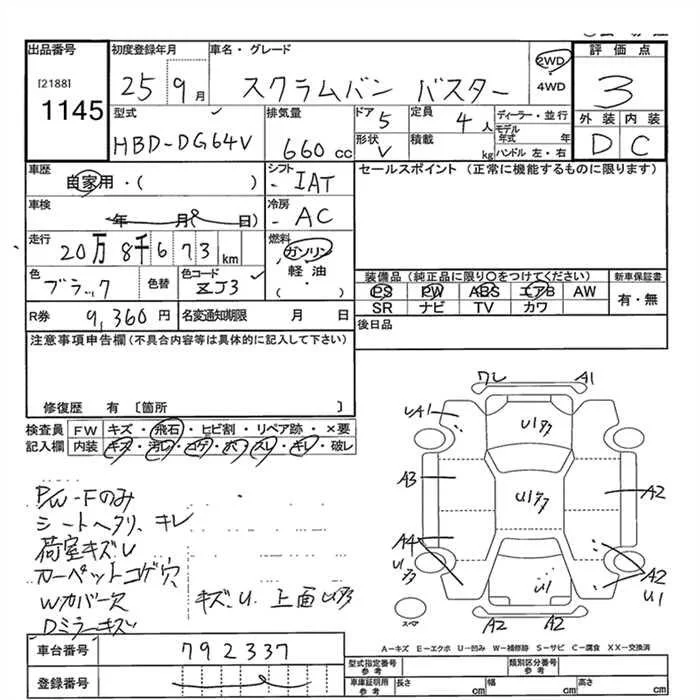 出品番号 初度登録年月 車名・グレード 評価点
[2188]
1145
25 9月 スクラムバン バスター 2WD
4WD
3
型式 排気量 ドア 定員 ディーラー・並行 外装 内装
HBD-DG64V 660cc 5 4人 モデル年式 年 D C
形状 V 積載 kg ハンドル 左・右
車歴 シフト セールスポイント (正常に機能するものに限ります)
自家用・( ) IAT
車検 冷房
年 月( 日) AC
走行 燃料
20万8千673km ガソリン
軽油
( )
色 色替 色コード 装備品(純正品に限り○をつけてください) 新車保証書
ブラック ZJ3 PS PW ABS エアB AW 有・無
SR ナビ TV カワ
R券 9,360円 名変通知期限 月 日 後日品
注意事項申告欄(不具合内容等は具体的に記入して下さい)
修復歴 有 〔箇所 〕
検査員 FW キズ・飛石・ヒビ割・リペア跡・×要
記入欄 内装 キズ・汚レ・コゲ・穴・スレ・キレ・破レ
P/W-Fのみ
シートヘタリ、キレ
荷室キズU
カーペットコゲ穴
Wカバー欠 キズ.U.上面
Dミラーキズ
ワレ A1
A1
A3
A2
A4
A2
U1
U1
A2 A2
スペア
A-キズ E-エクボ U-凹み W-補修跡 S-サビ C-腐食 XX-交換済
車台番号 792337
登録番号
型式指定番号 参考 類別区分番号 参考
車庫証明用 参考 長さ cm 幅 cm 高さ cm